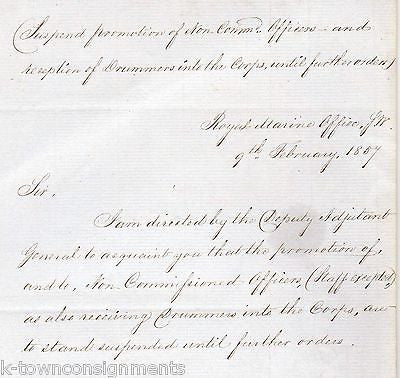 (Suspend promotion of Non Commd. Officers – and
reception of Drummers into the Corps, until further orders)
Royal Marine Office, S.W.
9th February, 1857
Sir.
I am directed by the Deputy Adjutant
General to acquaint you that the promotion of,
and to, Non-Commissioned Officers, (Staff excepted)
as also receiving Drummers into the Corps, are
to stand suspended until further orders.
k-townconsignments